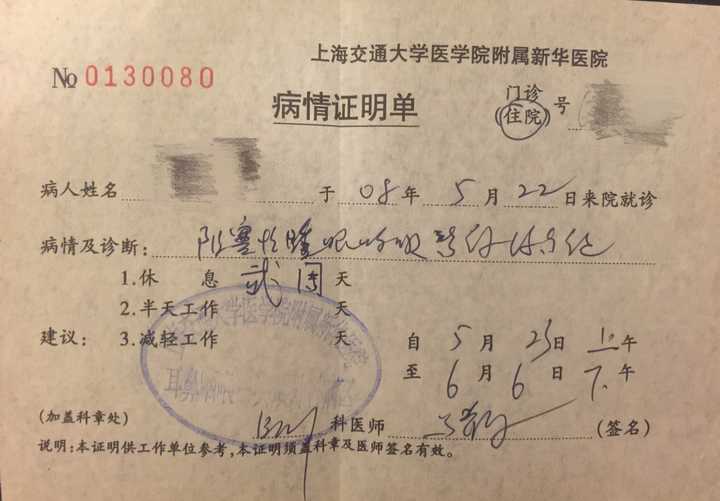 上海交通大学医学院附属新华医院
№ 0130080
病情证明单
门诊
住院 号
病人姓名 于 08 年 5 月 22 日来院就诊
病情及诊断: 阻塞性睡眠呼吸暂停
1.休 息 贰周 天
2.半天工作 天
建议: 3.减轻工作 天
自 5 月 23 日 上午
至 6 月 6 日 下午
大学医学院附属新华医院
耳鼻咽喉
(加盖科章处) 科医师 (签名)
说明:本证明供工作单位参考,本证明须盖科章及医师签名有效。